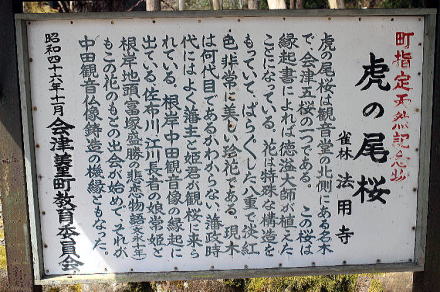 町指定天然記念物
虎の尾桜
雀林 法用寺
虎の尾桜は観音堂の北側にある名木
で、会津五桜の一つである。この桜は
縁起書によれば徳溢大師が植えた
ことになっている。花は特殊な構造を
もっていて、ぱらりくした八重で淡紅
色、非常に美しい花である。現木
は何代目であるかわからない。藩政時
代にはよく藩主と姫君が観桜に来ら
れている。根岸、中田観音の縁起に
出ている佐布川、江川長者の娘常姫と
根岸地頭、富塚盛勝の悲恋物語(文永八年)
もこの花のもとの出会が始めで、それが
中田観音仏像鋳造の機縁ともなった。
昭和四十六年十一月 会津美里町教育委員会